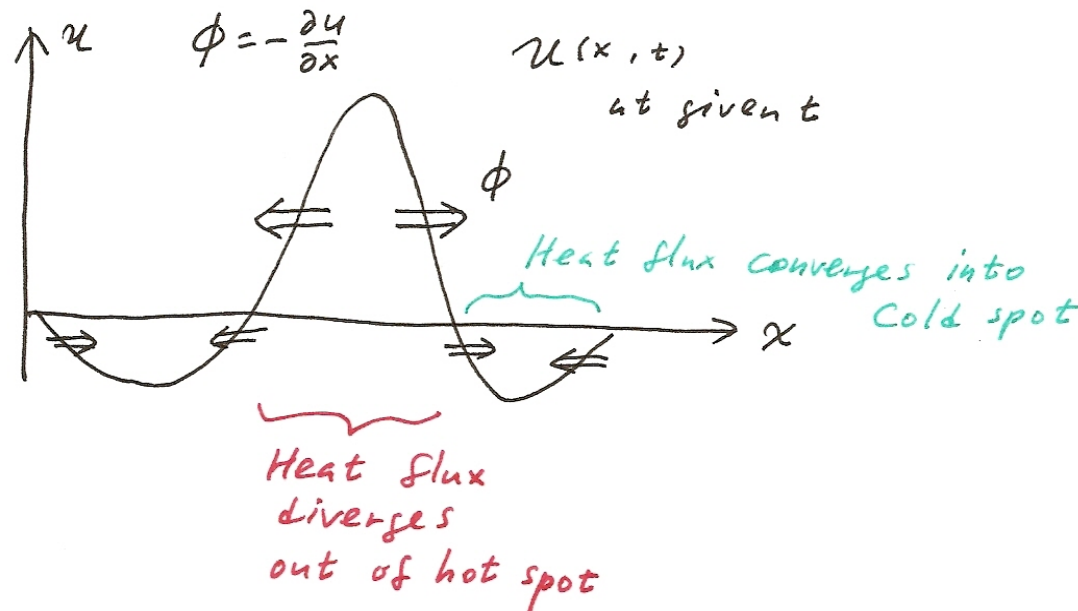 u
ϕ = - ∂u/∂x
u(x,t)
at given t
ϕ
Heat flux converges into
Cold spot
x
Heat flux
diverges
out of hot spot